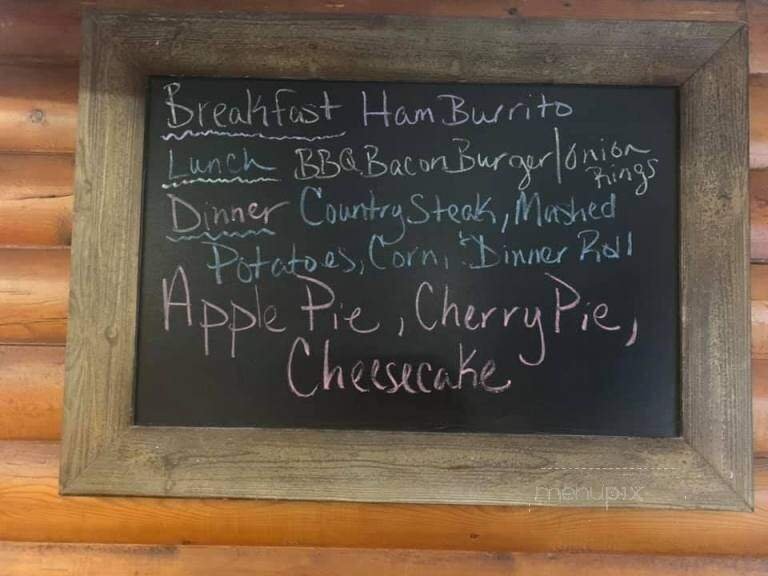 Breakfast Ham Burrito
Lunch BBQ Bacon Burger/Onion Rings
Dinner Country Steak, Mashed
Potatoes, Corn, Dinner Roll
Apple Pie, Cherry Pie,
Cheesecake
menupix